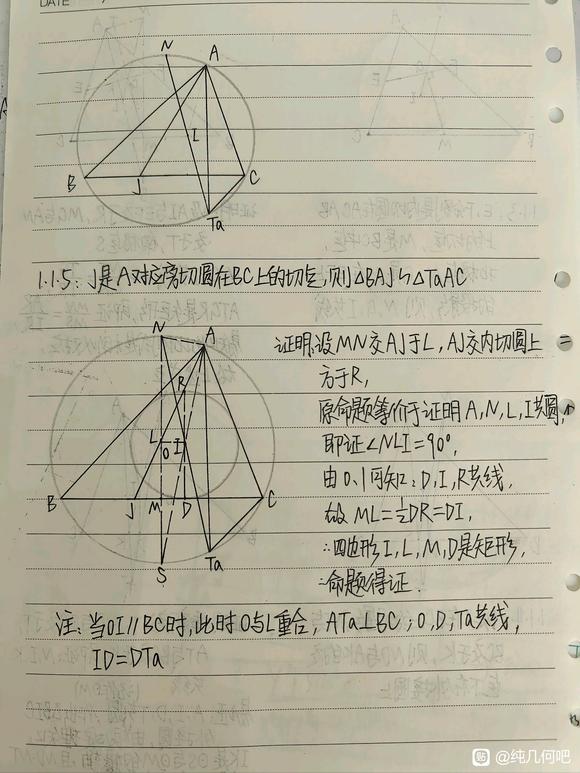 DATE
N
A
I
B
J
C
Ta
1.1.5: J是A对应旁切圆在BC上的切点,则△BAJ∽△TaAC
N
A
R
L
O
I
B
J
M
D
C
Ta
S
证明:设MN交AJ于L,AJ交内切圆上
方于R,
原命题等价于证明A,N,L,I共圆,
即证∠NLI=90°,
由0.1可知:D,I,R共线,
故ML=½DR=DI,
∴四边形I,L,M,D是矩形,
∴命题得证.
注:当OI∥BC时,此时O与L重合,ATa⊥BC;O,D,Ta共线,
ID=DTa
贴 @纯几何吧